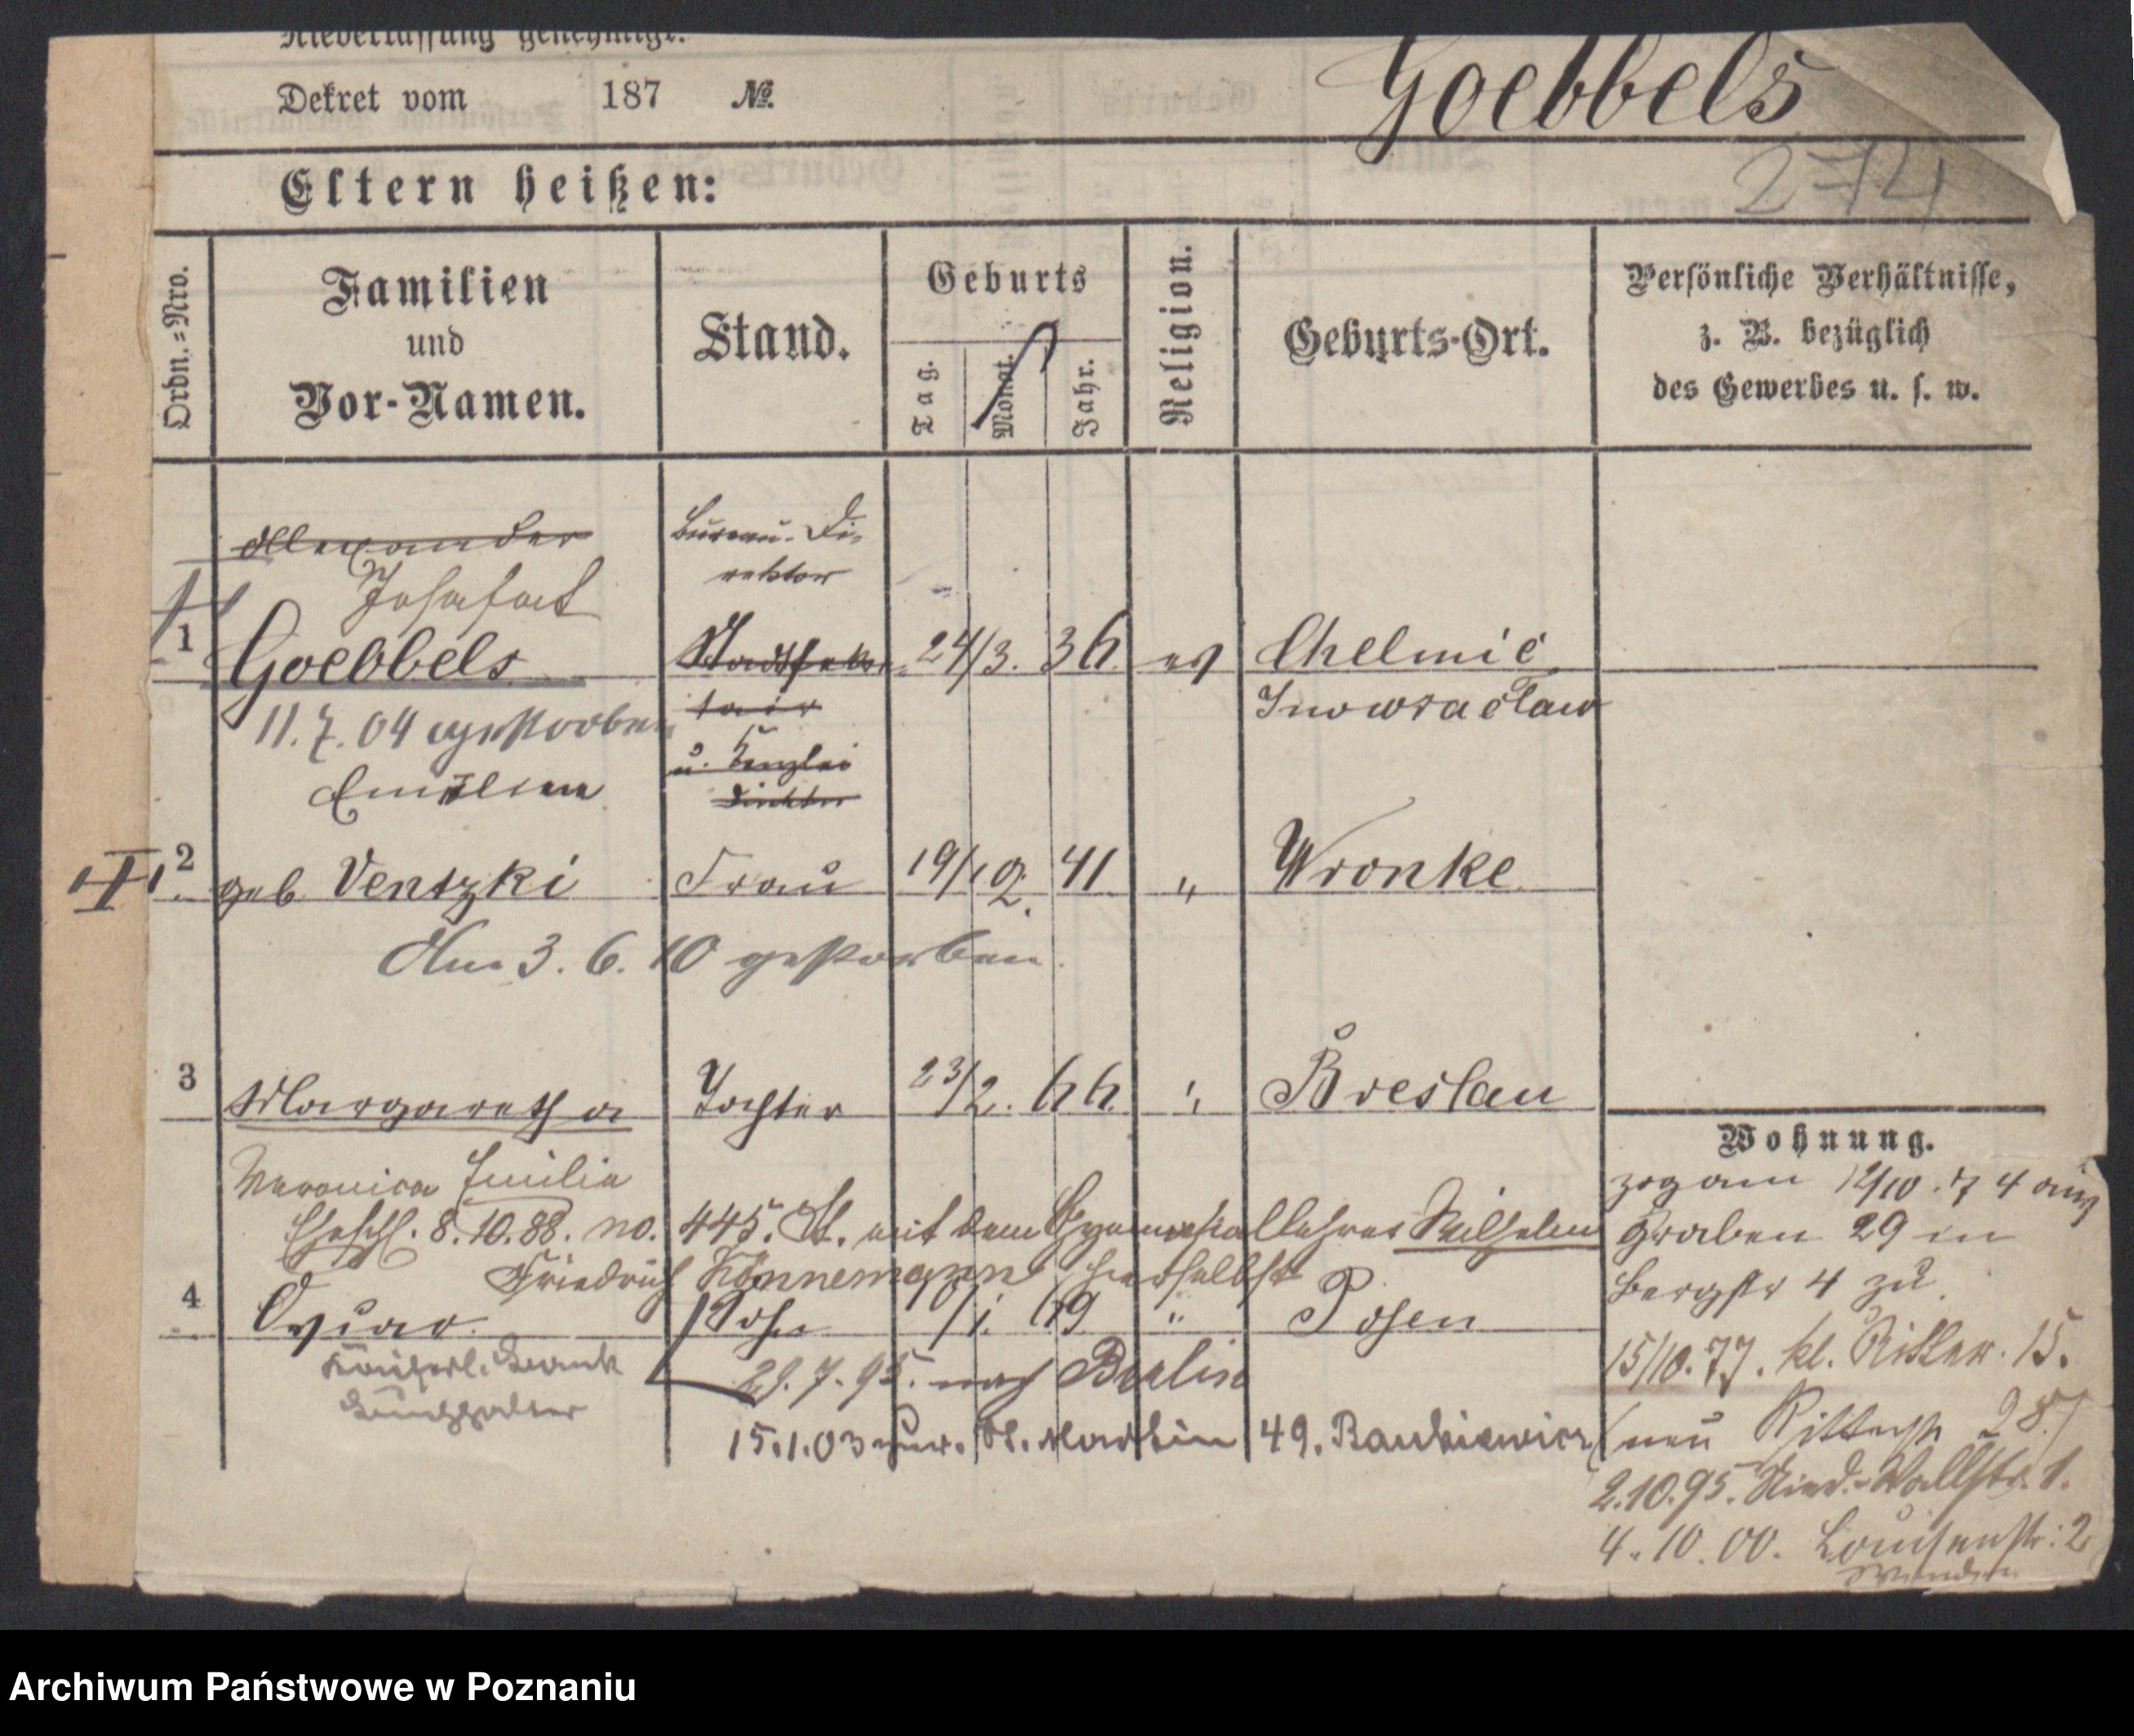 Niederlassung genehmigt.
Dekret vom 187 №
Goebbels
274
Eltern heißen:
Ordn.=Nro.
Familien
und
Vor-Namen.
Stand.
Geburts
Tag.
Monat.
Jahr.
Religion.
Geburts-Ort.
Persönliche Verhältnisse,
z. B. bezüglich
des Gewerbes u. s. w.
Alexander
Josafat
Bureau-Di-
rektor
1 Goebbels Stadtsekre- 24/3. 36. ev Chelmic
tair Inowraclaw
11.7.04 gestorben
u. Kanzlei
Emilie
2 geb. Ventzki Frau 19/12. 41 " Wronke
Am 3. 6. 10 gestorben.
3 Margaretha Tochter 23/2. 66. " Breslau
Wohnung.
Veronica Emilie
zog am 12/10. 74 aus
Eheschl. 8.10.88. no. 445. St. mit dem Gymnasiallehrer Wilhelm
Graben 29 in
Friedrich Könnemann hierselbst
Bergstr 4 zu.
4 Oscar Sohn /1. 69 " Posen
15/10.77. kl. Ritter. 15.
29.7.95. nach Berlin
Buchhalter
(neu Ritterstr 28)
15.1.03 zur. St. Martin 49. Rankiewicz
2.10.95. Nied.-Wallstr. 1.
4.10.00. Louisenstr: 2
wenden
Archiwum Państwowe w Poznaniu